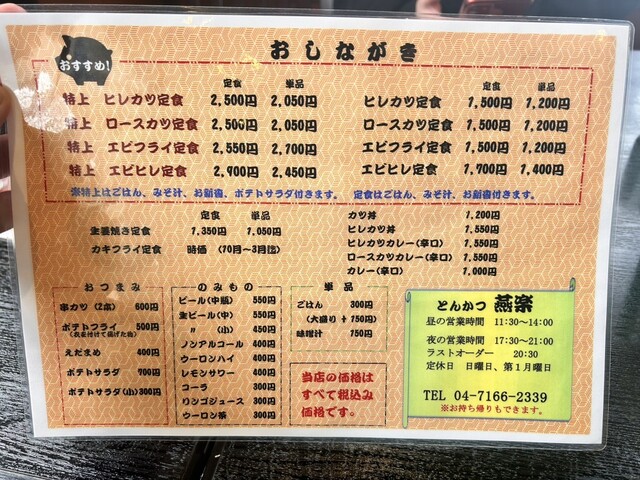 おしながき
おすすめ!
定食 単品
特上 ヒレカツ定食 2,500円 2,050円
特上 ロースカツ定食 2,500円 2,050円
特上 エビフライ定食 2,550円 2,100円
特上 エビヒレ定食 2,900円 2,450円
定食 単品
ヒレカツ定食 1,500円 1,200円
ロースカツ定食 1,500円 1,200円
エビフライ定食 1,500円 1,200円
エビヒレ定食 1,700円 1,400円
※特上はごはん、みそ汁、お新香、ポテトサラダ付きます。 定食はごはん、みそ汁、お新香付きます。
定食 単品
生姜焼き定食 1,350円 1,050円
カキフライ定食 時価 (10月〜3月迄)
カツ丼 1,200円
ヒレカツ丼 1,550円
ヒレカツカレー(辛口) 1,550円
ロースカツカレー(辛口) 1,550円
カレー(辛口) 1,000円
おつまみ
串カツ (2本) 600円
ポテトフライ 500円
(衣を付けて揚げた物)
えだまめ 400円
ポテトサラダ 700円
ポテトサラダ(小) 300円
のみもの
ビール(中瓶) 550円
生ビール(中) 550円
〃 (小) 450円
ノンアルコール 400円
ウーロンハイ 400円
レモンサワー 400円
コーラ 300円
リンゴジュース 300円
ウーロン茶 300円
単品
ごはん 300円
(大盛り + 150円)
味噌汁 150円
当店の価格は
すべて税込み
価格です。
とんかつ 燕楽
昼の営業時間 11:30〜14:00
夜の営業時間 17:30〜21:00
ラストオーダー 20:30
定休日 日曜日、第1月曜日
TEL 04-7166-2339
※お持ち帰りもできます。